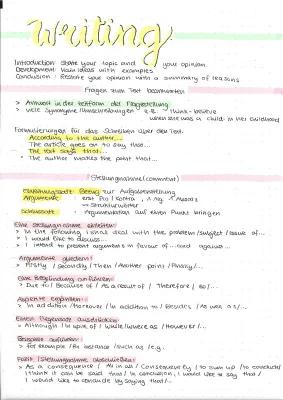 Writing
Introduction: state your topic and your opinion.
Development: Main ideas with examples
Conclusion: Restate your opinion with a summary of reasons
Fragen zum Text beantworten
> Antwort in der Zeitform der Fragestellung
> viele Synonyme/Umschreibungen z.B. think - believe
when she was a child - in her childhood
Formulierungen für das Schreiben über den Text.
According to the author...
The article goes on to say that...
The text says that...
• The author makes the point that...
Stellungnahme (comment)
Einleitungssatz: Bezug zur Aufgabenstellung
Argumente: erst Pro/Kontra, 1 Arg. 1 Absatz
→ Strukturwörter
Schlusssatz: Argumentation auf einen Punkt bringen
Eine Stellungnahme einleiten:
> In the following I shall deal with the problem/subject/issue of...
> I would like to discuss...
> I intend to present arguments in favour of... and against...
Argumente gliedern:
> Firstly / Secondly / Then / Another point / Finally/...
Eine Begründung anführen:
> Due to / Because of / As a result of / Therefore / so/...
Aspekte ergänzen:
> In addition / Moreover / In addition to / Besides / As well as/...
Einen Gegensatz ausdrücken:
> Although / In spite of / While/Whereas / However/...
Beispiele anführen:
> for example / for instance / such as / e.g.
Fazit/Stellungnahme abschließen:
> As a consequence / All in all / Consequently / to sum up / to conclude/
I think it can be said that / In conclusion, I would like to say that /
I would like to conclude by saying that/...